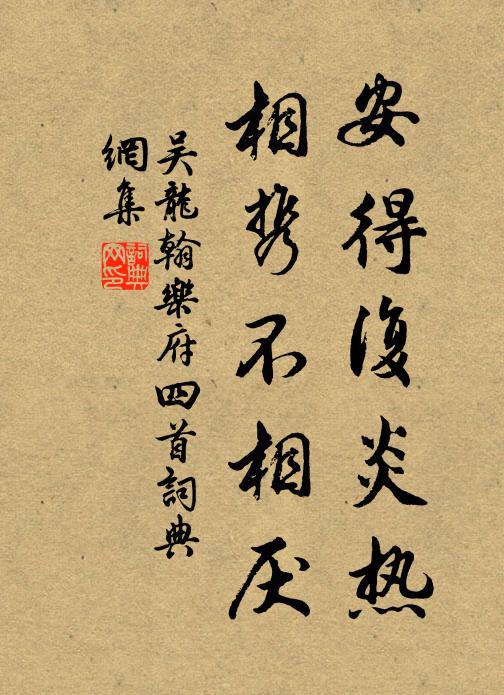 安得復炎热
相携不相厌
吴龍翰樂府四首詞典
網集
詞典网印